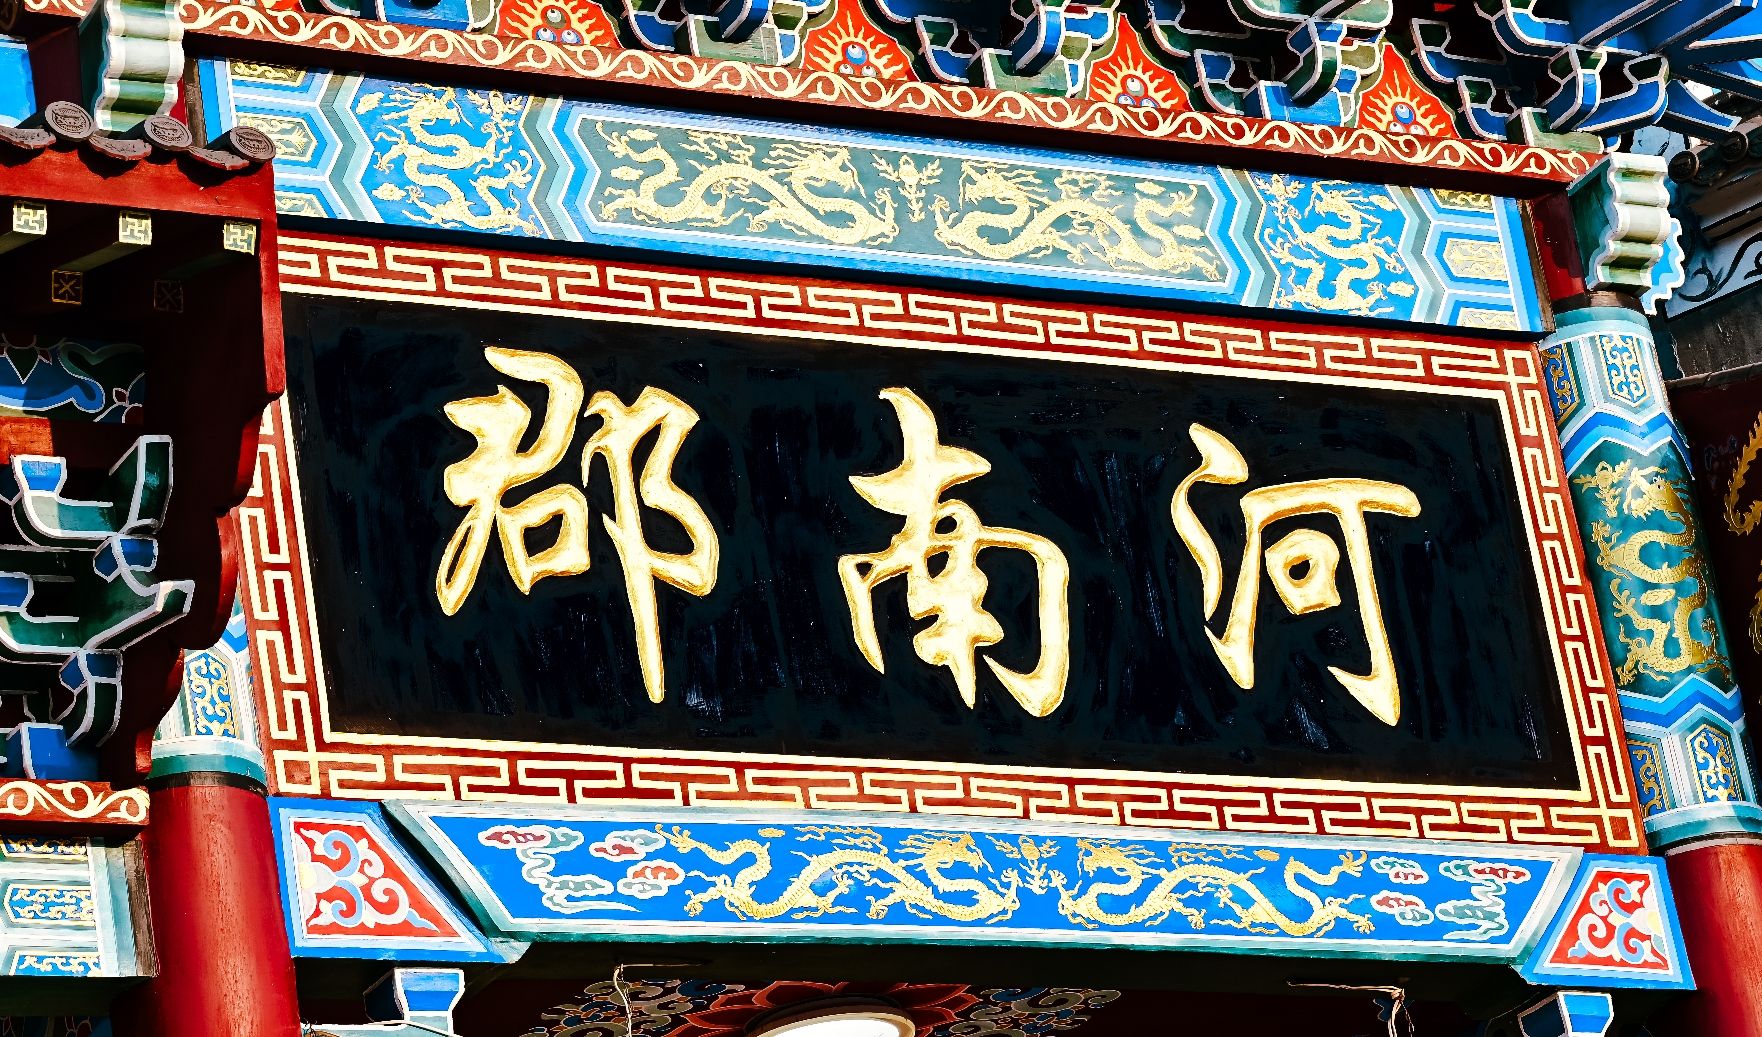 河南郡